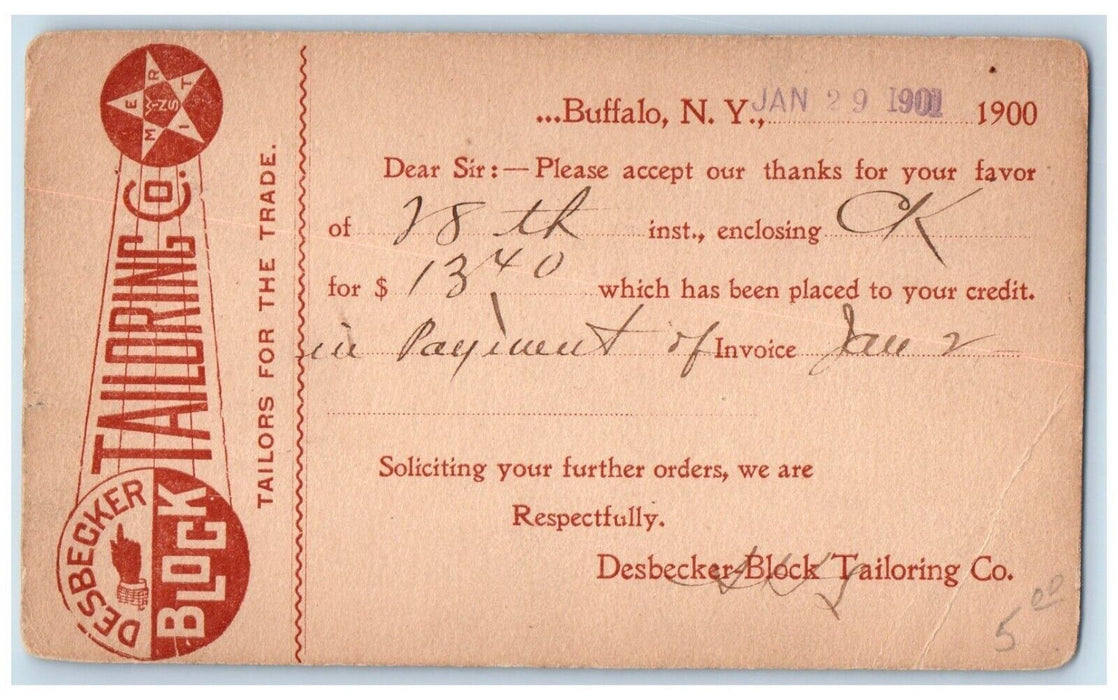 MERIT
WINS
DESBECKER
BLOCK
TAILORING Co.
TAILORS FOR THE TRADE.
...Buffalo, N. Y., JAN 29 1901 1900
Dear Sir:— Please accept our thanks for your favor
of 28th inst., enclosing CK
for $ 13 40 which has been placed to your credit.
in Payment of Invoice Jan 2
Soliciting your further orders, we are
Respectfully.
Desbecker-Block Tailoring Co.
5 00